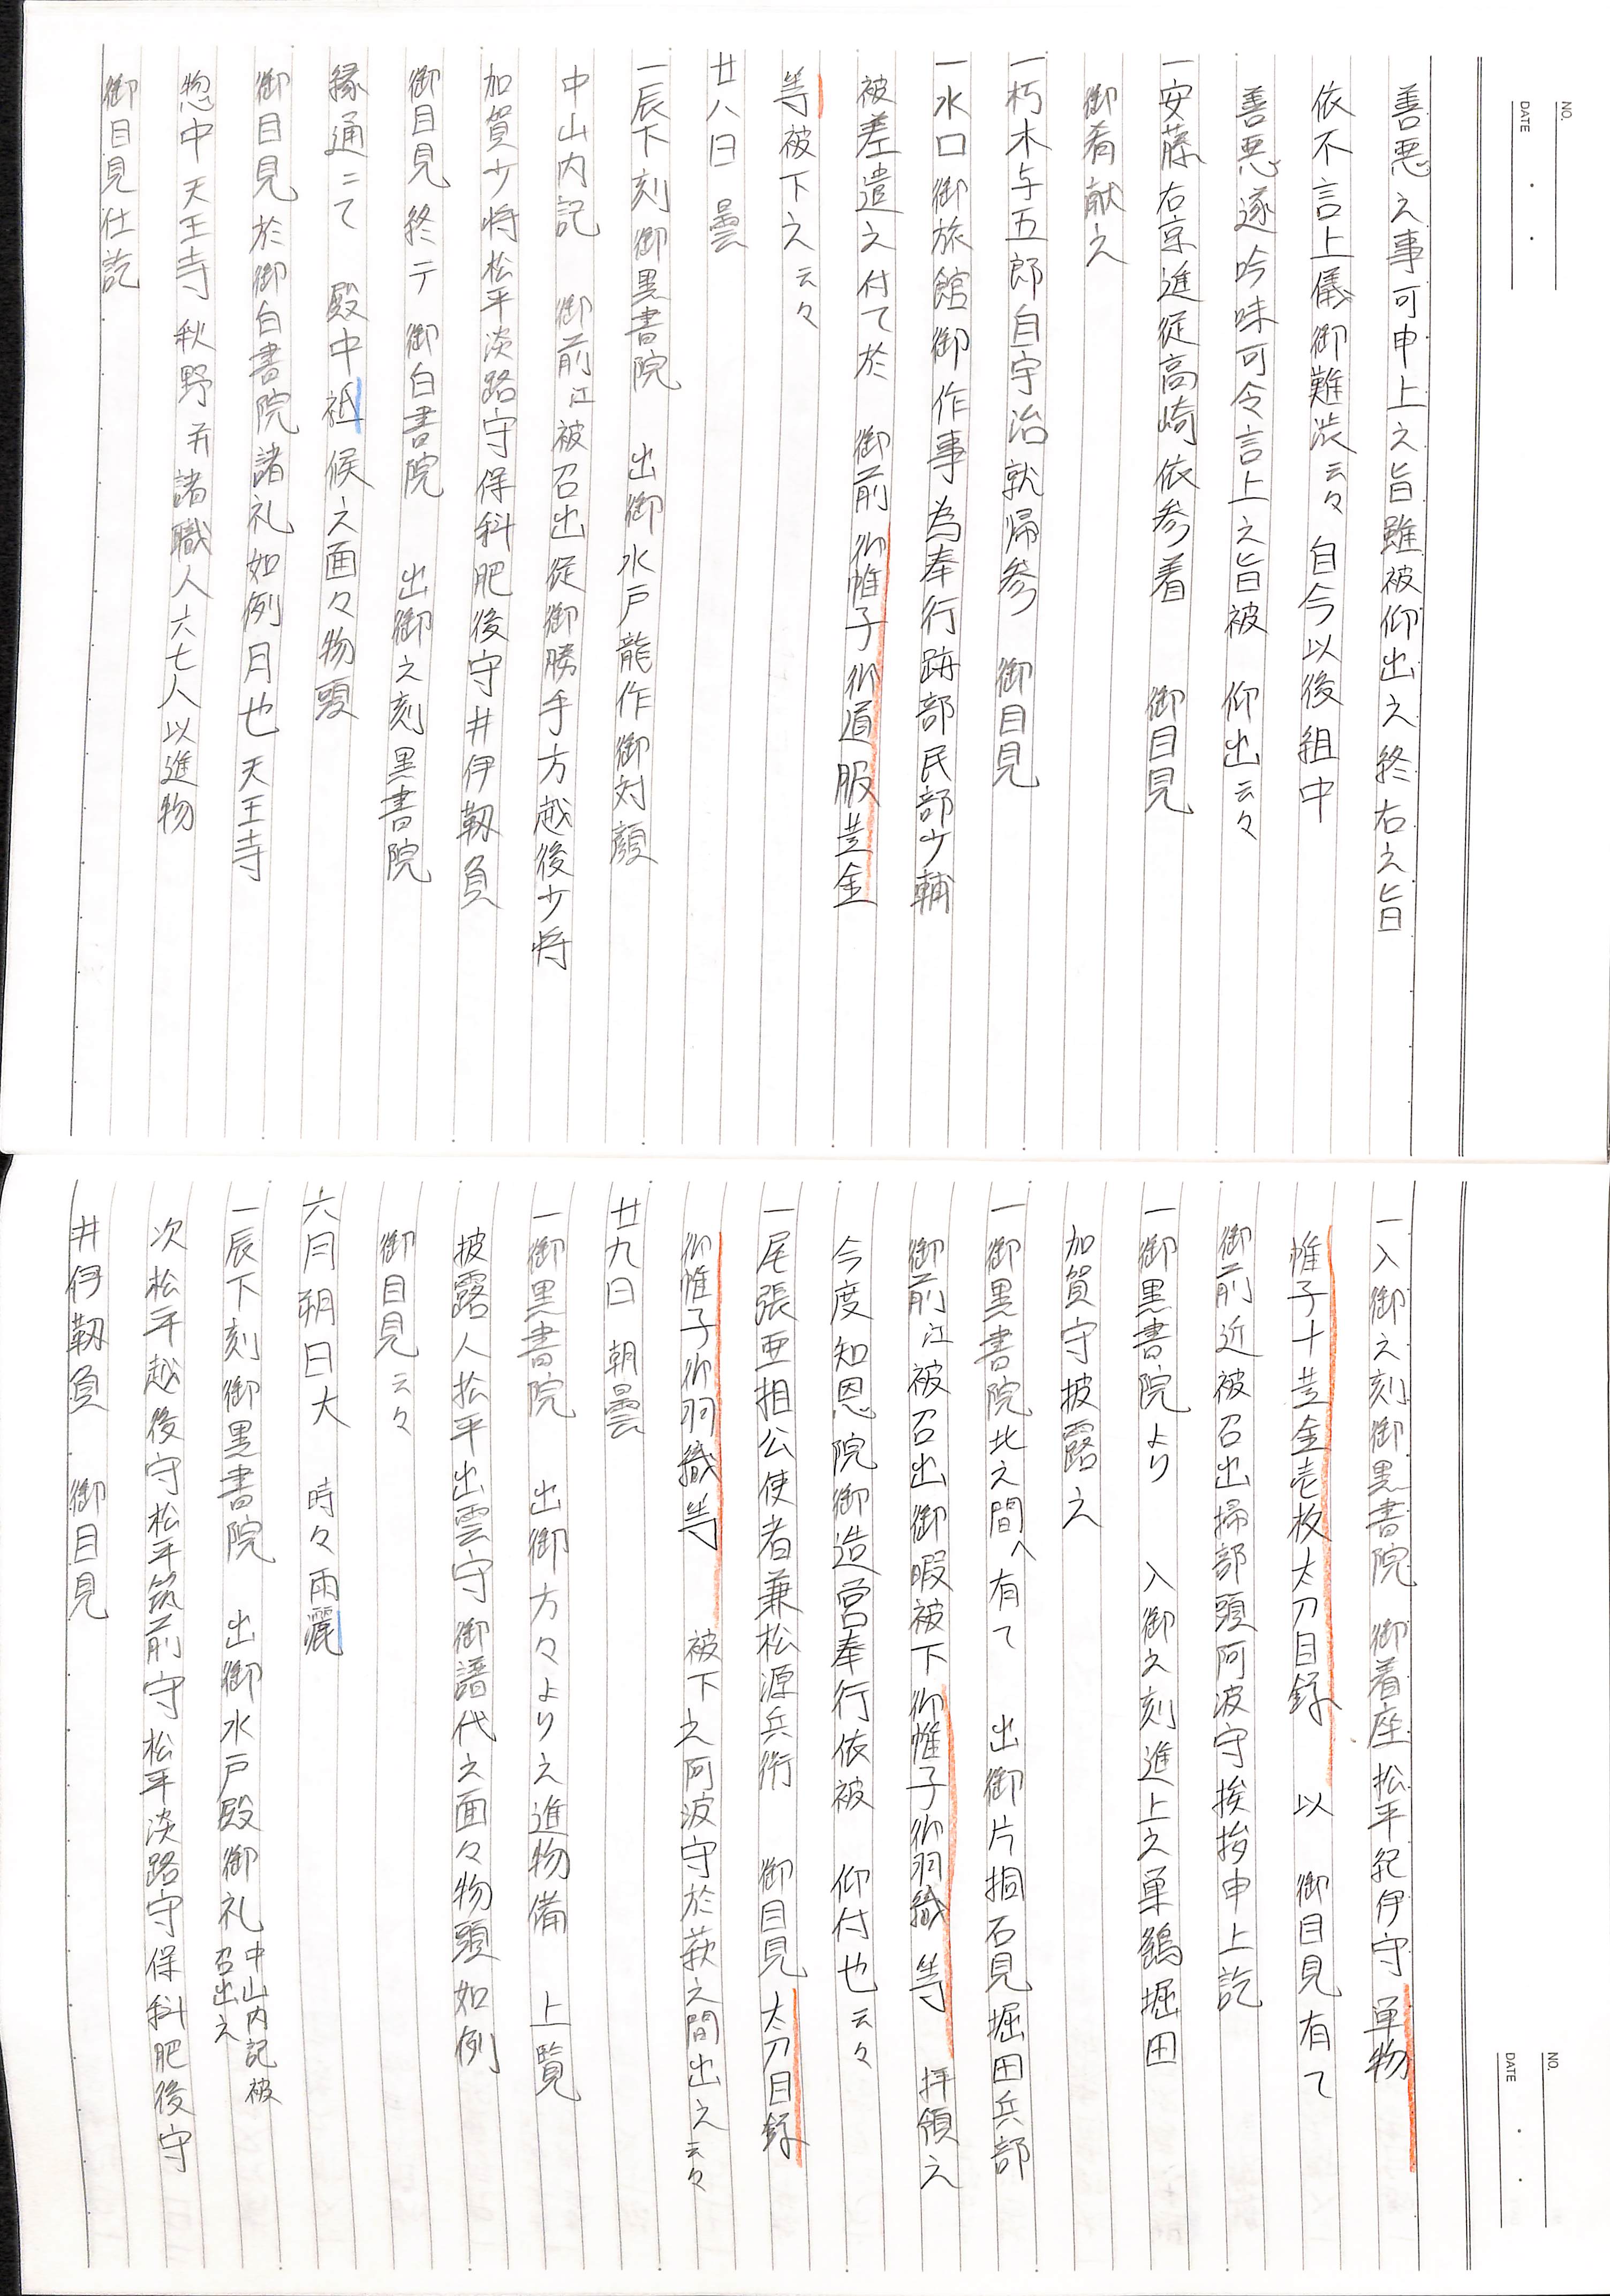 NO.
DATE
善悪之事可申上之旨雖被仰出之終右之旨
依不言上儀御難渋云々自今以後組中
善悪遂吟味可令言上之旨被 仰出云々
一安藤右京進従高崎依参着 御目見
御肴献之
一朽木与五郎自宇治就帰参 御目見
一水口御旅館御作事為奉行跡部民部少輔
被差遣之付て於 御前御帷子御道服並金
等被下之云々
廿八日 曇
一辰下刻御黒書院 出御水戸龍作御対顔
中山内記 御前江被召出従御勝手方越後少将
加賀少将松平淡路守保科肥後守井伊靱負
御目見終テ御白書院 出御之刻黒書院
縁通ニて 殿中祗候之面々物頭
御目見於御白書院諸礼如例月也天王寺
惣中天王寺秋野并諸職人六七人以進物
御目見仕訖
NO.
DATE
一入御之刻御黒書院 御着座松平紀伊守単物
帷子十並金壱枚太刀目録 以 御目見有て
御前近被召出掃部頭阿波守挨拶申上訖
一御黒書院より 入御之刻進上之単鶴堀田
加賀守披露之
一御黒書院北之間へ有て 出御片桐石見堀田兵部
御前江被召出御暇被下御帷子御羽織等 拝領之
今度知恩院御造営奉行依被 仰付也云々
一尾張亜相公使者兼松源兵衛 御目見太刀目録
御帷子御羽織等 被下之阿波守於萩之間出之云々
廿九日 朝曇
一御黒書院 出御方々より之進物備 上覧
披露人松平出雲守御譜代之面々物頭如例
御目見云々
六月朔日大 時々雨灑
一辰下刻御黒書院 出御水戸殿御礼中山内記被召出之
次松平越後守松平筑前守松平淡路守保科肥後守
井伊靱負 御目見